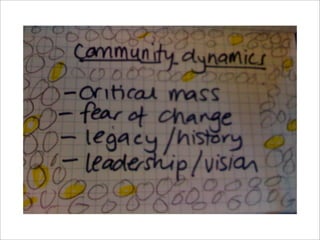 community dynamics
- critical mass
- fear of change
- legacy/history
- leadership/vision